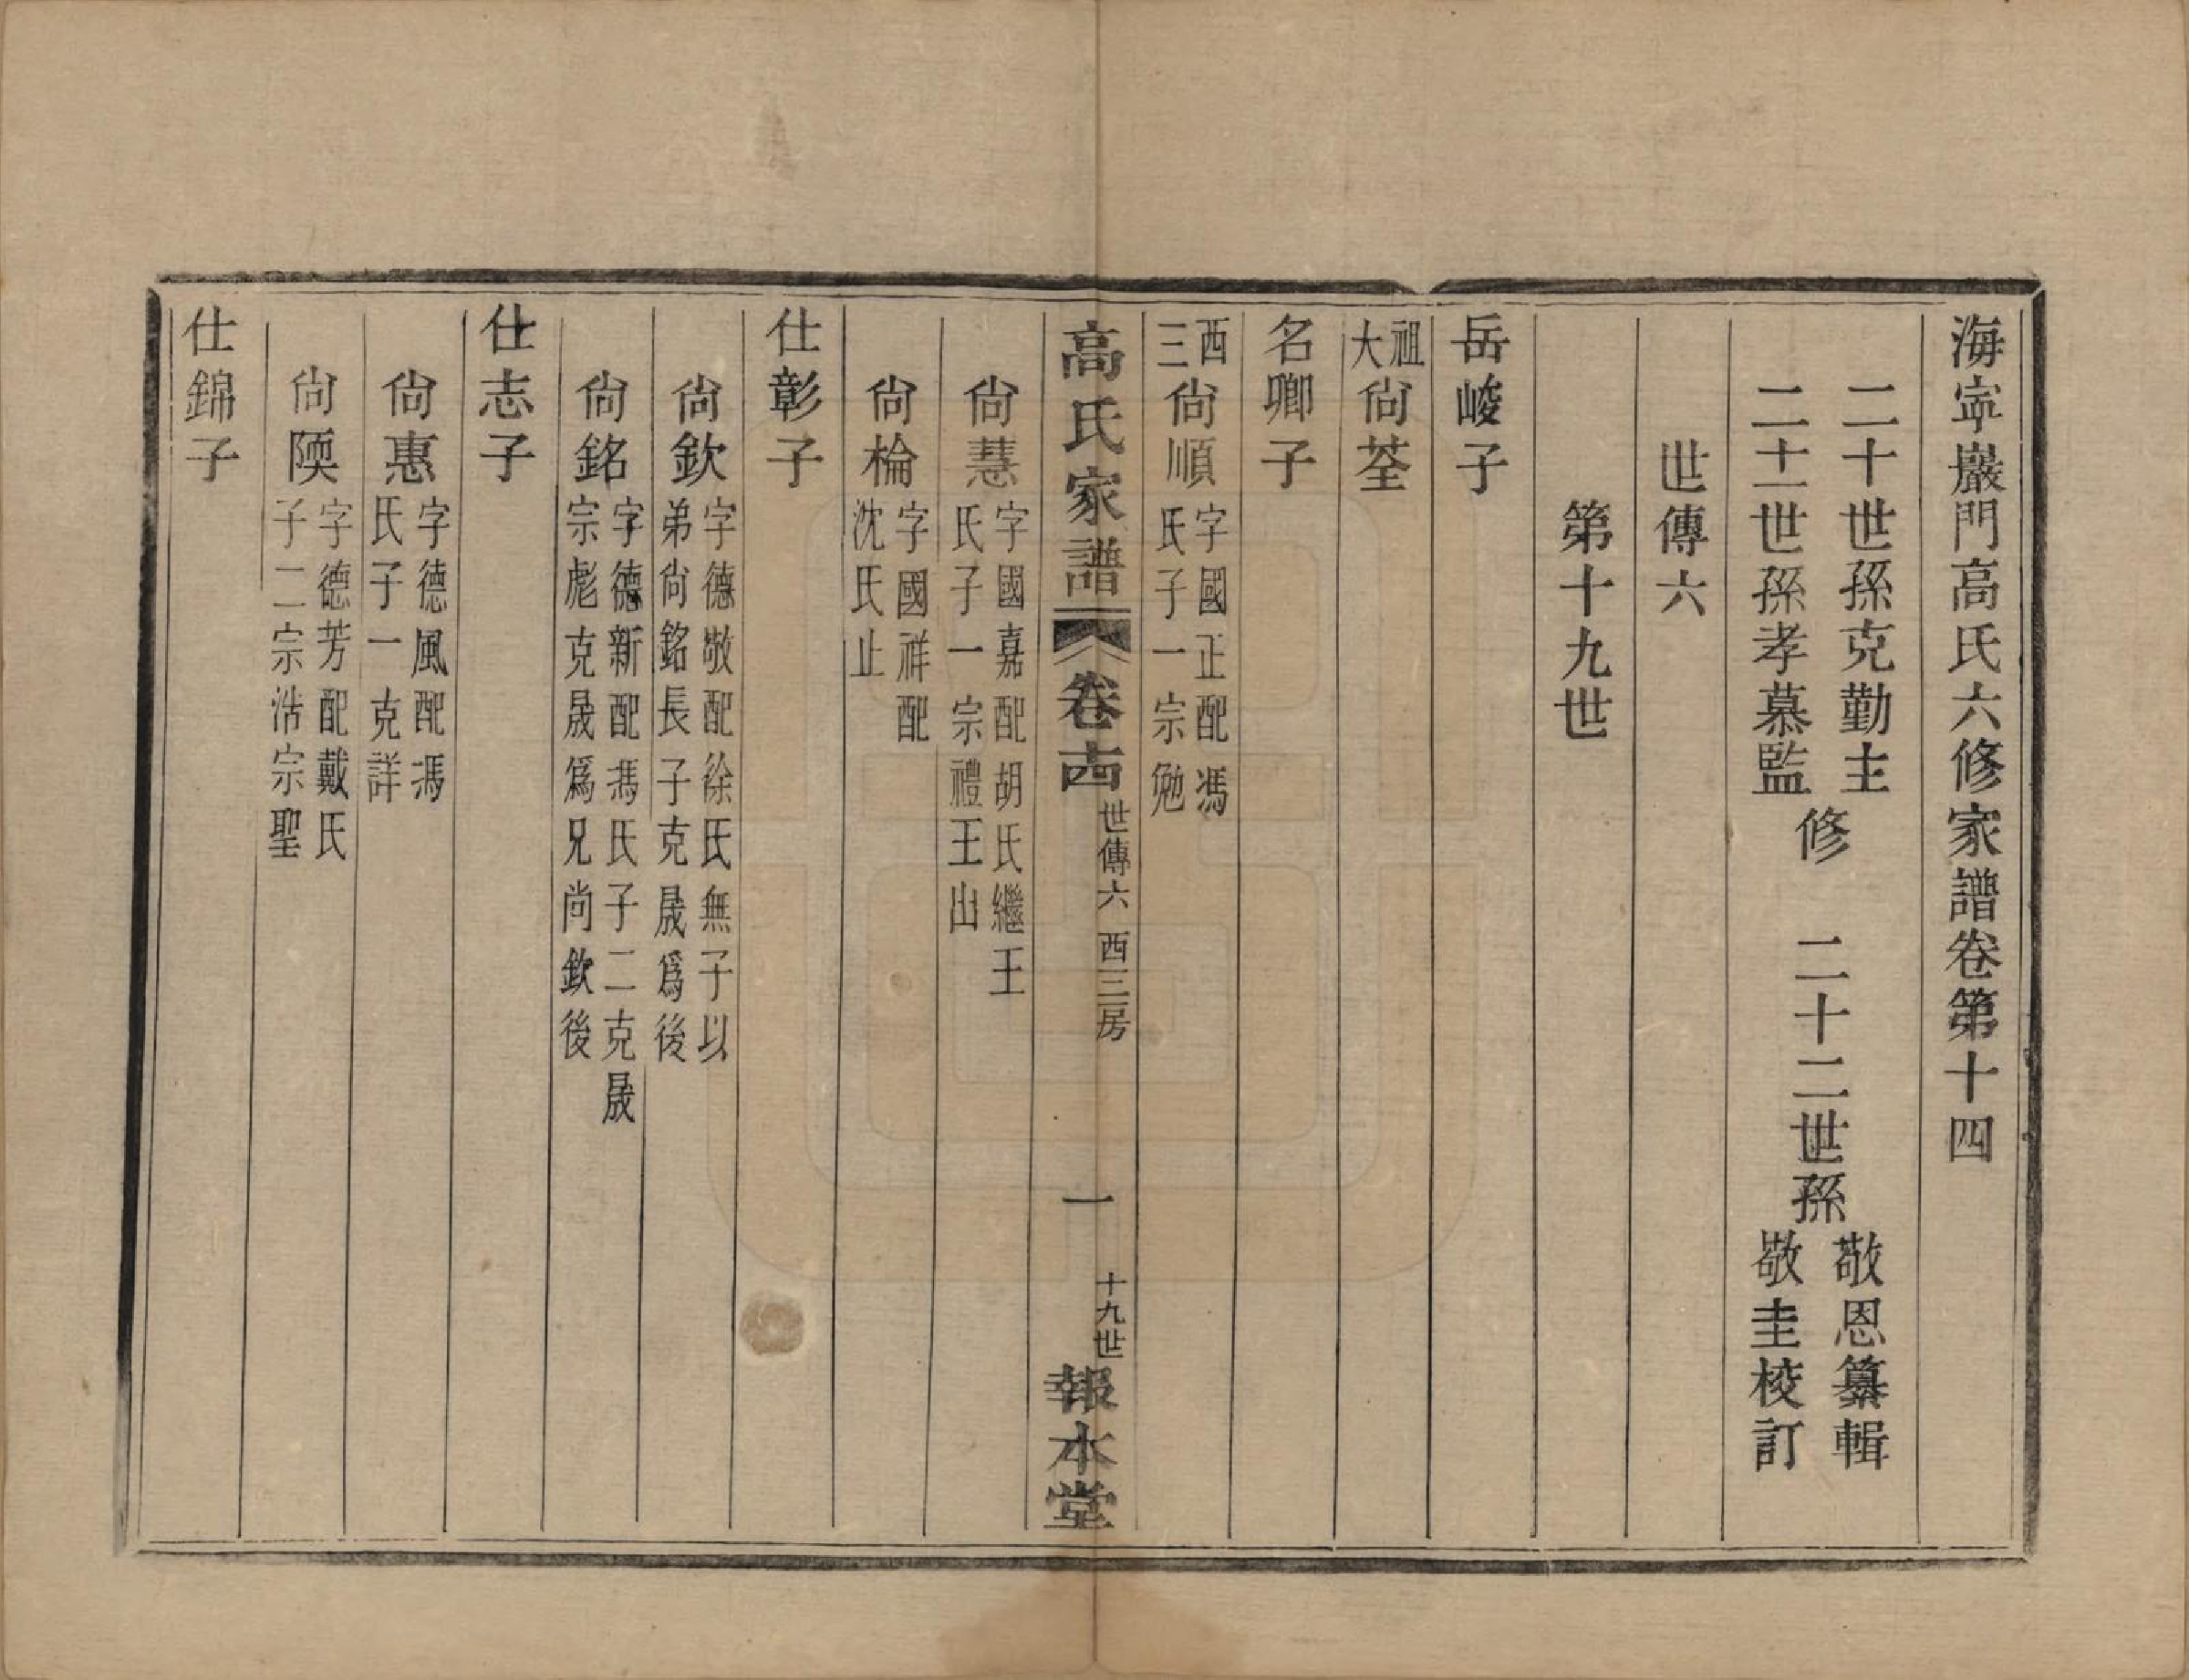 海寧巖門高氏六修家譜卷第十四
二十世孫克勤主
二十一世孫孝慕監
修
二十二世孫
敬恩纂輯
敬圭校訂
世傳六
第十九世
岳峻子
祖大
尙荃
名卿子
西三
尙順
字國正配馮
氏子一宗勉
高氏家譜
卷十四
世傳六 西三房
一
十九世
報本堂
尙慧
字國嘉配胡氏繼王
氏子一宗禮王出
尙棆
字國祥配
沈氏止
仕彰子
尙欽
字德敬配徐氏無子以
弟尙銘長子克晟爲後
尙銘
字德新配馮氏子二克晟
宗彪克晟爲兄尙欽後
仕志子
尙惠
字德風配馮
氏子一克詳
尙陾
字德芳配戴氏
子二宗浩宗聖
仕錦子